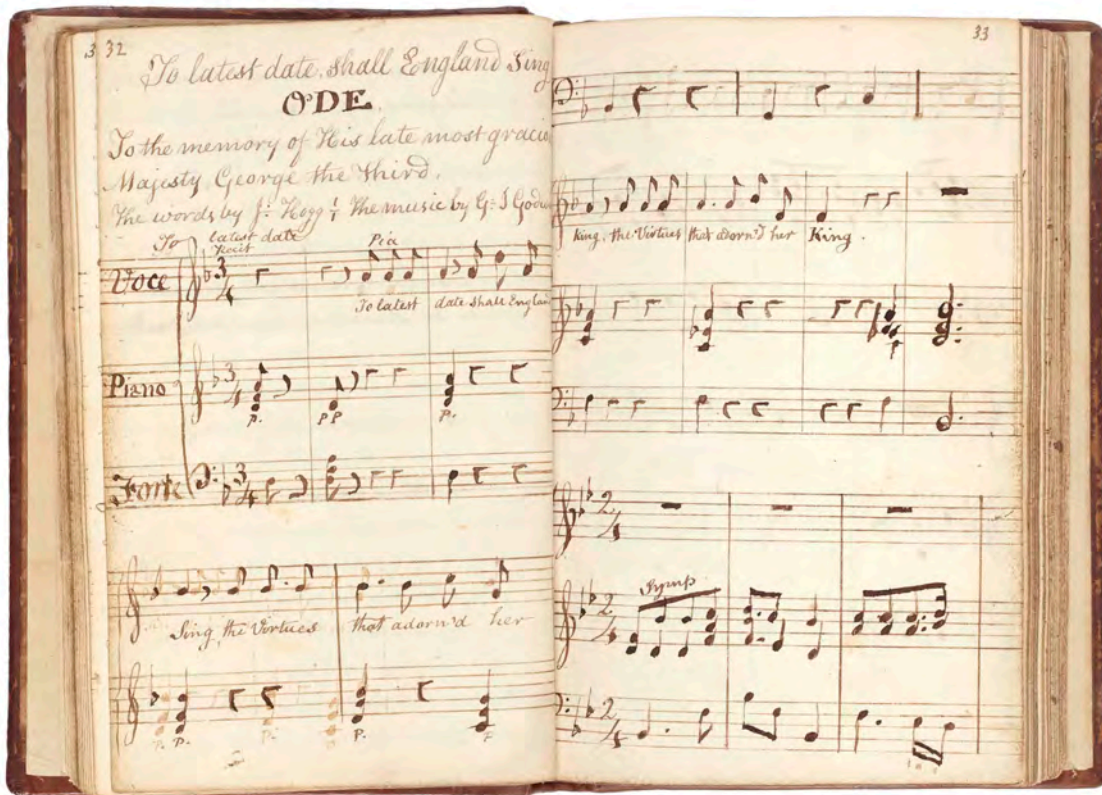 3 32
To latest date, shall England Sing
ODE.
To the memory of His late most
Majesty George the third.
The words by J: Hogg; the music by G: I
To latest date
Recit
Pia
Voce
3
4
To latest date shall
Piano
3
4
p. pp p.
Forte
3
4
Sing, the Virtues that adorn'd her
p. p. p. p. p
33
King, the Virtues that adorn'd her King.
p
2
4
Symp
2
4
2
4